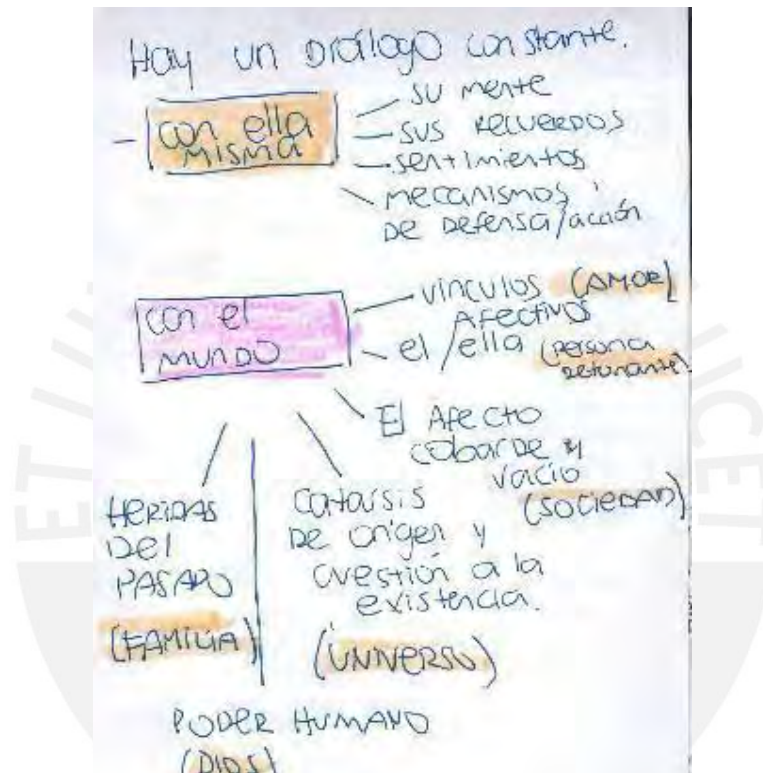 Hay un diálogo constante.
- con ella
misma
su mente
sus recuerdos
sentimientos
mecanismos
de defensa/acción
con el
mundo
vínculos (AMOR)
afectivos
el/ella (persona
detonante)
El afecto
cobarde y
vacío
(SOCIEDAD)
HERIDAS
DEL
PASADO
(FAMILIA)
catarsis
de origen y
cuestión a la
existencia.
(UNIVERSO)
PODER HUMANO
(DIOS)
ET LUX IN
LUCET